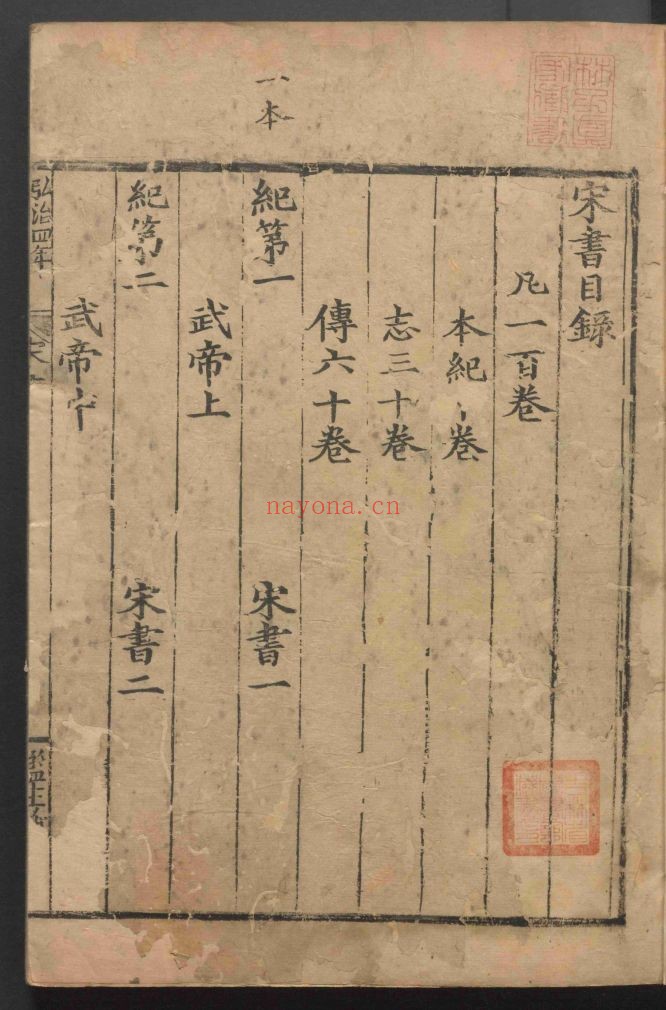 一本
宋書目錄
凡一百卷
本紀十卷
志三十卷
傳六十卷
紀第一 宋書一
武帝上
紀第二 宋書二
武帝中
弘治四年
nayona.cn